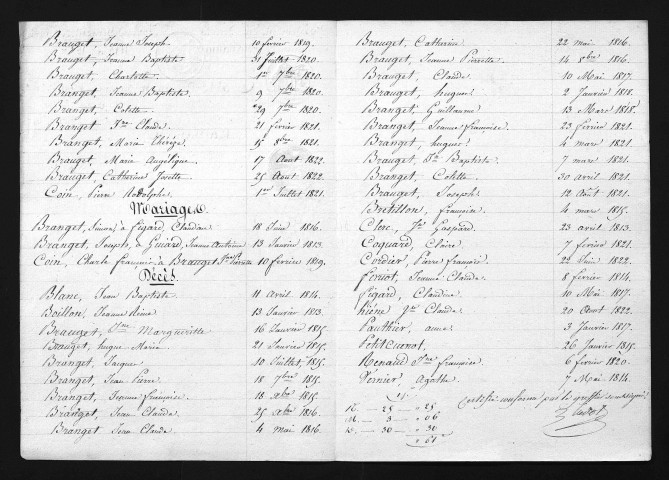 Brauget, Jeanne Joseph. 10 février 1819.
Brauget, Jeanne Baptiste 31 Juillet 1820.
Brauget, Charlotte. 1er 7bre 1820.
Branget, Jeanne Baptiste. 9 7bre 1820.
Branget, Colette. 29 7bre 1820.
Branget Jne Claude. 21 février 1821.
Branget, Maria Thérèze. 15 8bre 1821.
Brauget, Maria Angélique. 17 Aout 1822.
Brauget, Catherine Josette. 25 Aout 1822.
Coin, Pierre Rodolphe. 1er Juillet 1821.
Mariages.
Branget, à Figard, Claudine 18 Juin 1816.
Branget, Joseph, à Guiard, Jeanne Antoinne 13 Janvier 1813.
Coin, Charle françois, à Branget, Jne Pierrette 10 février 1819.
Décès.
Blanc, Jean Baptiste. 11 Avril 1814.
Boillon, Jeanne Reine. 13 Janvier 1813.
Brauget, Marguerite 16 Janvier 1815.
Brauget, hugue Marie 21 Janvier 1815.
Branget, Jacques. 10 Juillet, 1815.
Branget, Jean Pierre. 18 7bre 1815.
Branget, Jeanne françoise. 18 xbre 1815.
Branget, Jean Claude. 25 xbre 1816.
Branget Jean Claude. 4 mai 1816.
Brauget, Catherine. 22 mai 1816.
Brauget, Jeanne Pierrette. 14 8bre 1816.
Brauget, Claude. 10 Mai 1817.
Brauget, hugues. 2 Janvier 1818.
Branget, Guillaume. 13 Mars 1818.
Branget, Jeanne françoise. 23 février 1821.
Branget, hugues. 4 mars 1821.
Brauget, Jn Baptiste. 7 mars 1821.
Branget, Colette. 30 avril 1821.
Brauget, Joseph. 12 Août 1821.
Bretillon, françoise. 4 mars 1815.
Clerc, Jn Gaspard. 23 avril 1813.
Coquard, Claire. 7 février 1821.
Cordier, Pierre François. 22 Juin 1822.
Jeanne Claude. 8 février 1814.
Figard, Claudine. 10 Mai 1817.
Claude. 20 Aout 1822.
Pauthier, anne. 3 Janvier 1817.
Petitcuenot. 26 Janvier 1815.
Renaud Jne françoise. 6 février 1820.
Vernier, Agathe. 7 Mai 1814.
25 " 25
3 " 06
30 " 30
" 61
Certifié conforme par le greffier soussigné